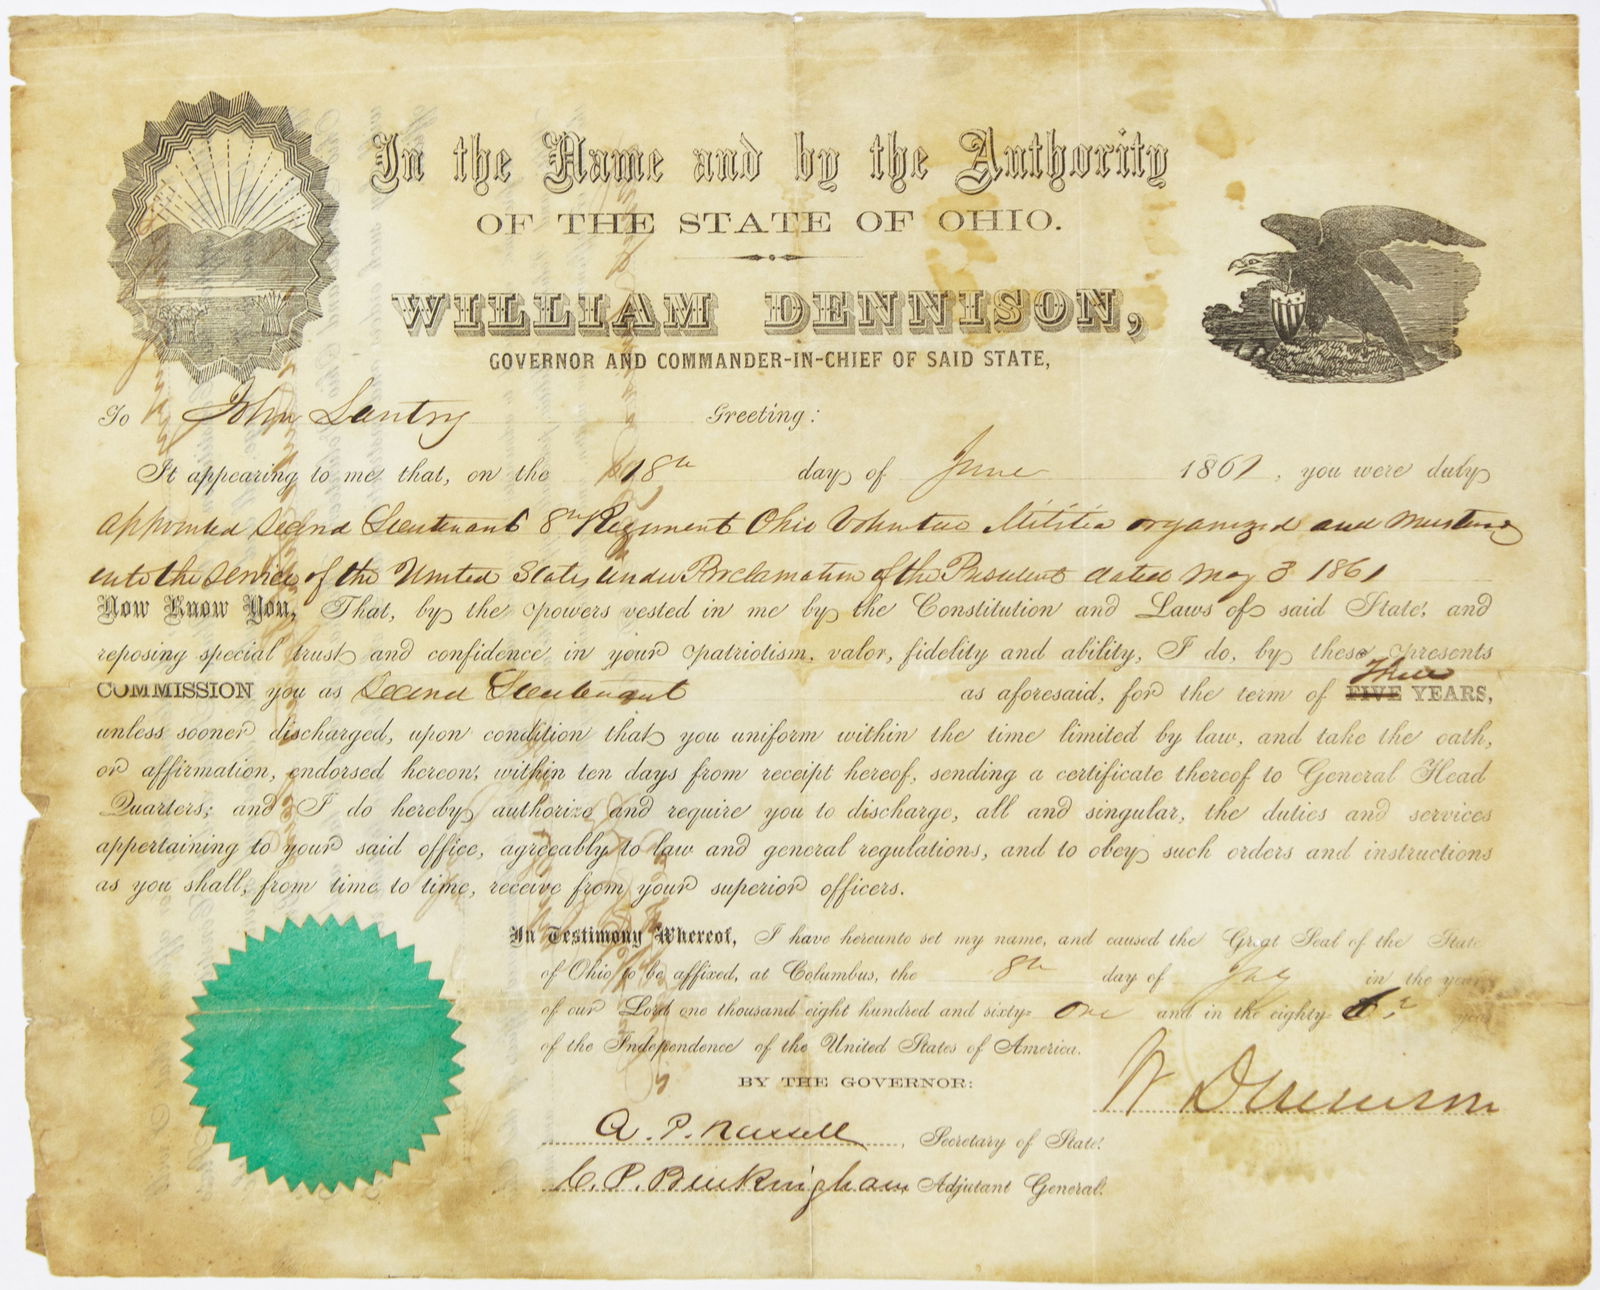 In the Name and by the Authority
OF THE STATE OF OHIO.
WILLIAM DENNISON,
GOVERNOR AND COMMANDER-IN-CHIEF OF SAID STATE,
To John Lantry Greeting:
It appearing to me that, on the 18th day of June 1861, you were duly
appointed Second Lieutenant 8th Regiment Ohio Volunteer Militia organized and mustered
into the service of the United States under Proclamation of the President dated May 3 1861
Now Know You, That, by the powers vested in me by the Constitution and Laws of said State, and
reposing special trust and confidence in your patriotism, valor, fidelity and ability, I do, by these presents
COMMISSION you as Second Lieutenant as aforesaid, for the term of Three FIVE YEARS,
unless sooner discharged, upon condition that you uniform within the time limited by law, and take the oath,
or affirmation, endorsed hereon, within ten days from receipt hereof, sending a certificate thereof to General Head
Quarters; and I do hereby authorize and require you to discharge, all and singular, the duties and services
appertaining to your said office, agreeably to law and general regulations, and to obey such orders and instructions
as you shall, from time to time, receive from your superior officers.
In Testimony Whereof, I have hereunto set my name, and caused the Great Seal of the State
of Ohio to be affixed, at Columbus, the 8th day of in the year
of our Lord one thousand eight hundred and sixty- One and in the eighty year
of the Independence of the United States of America.
BY THE GOVERNOR:
W Dennison
A. P. Russell, Secretary of State.
C. P. Buckingham Adjutant General.